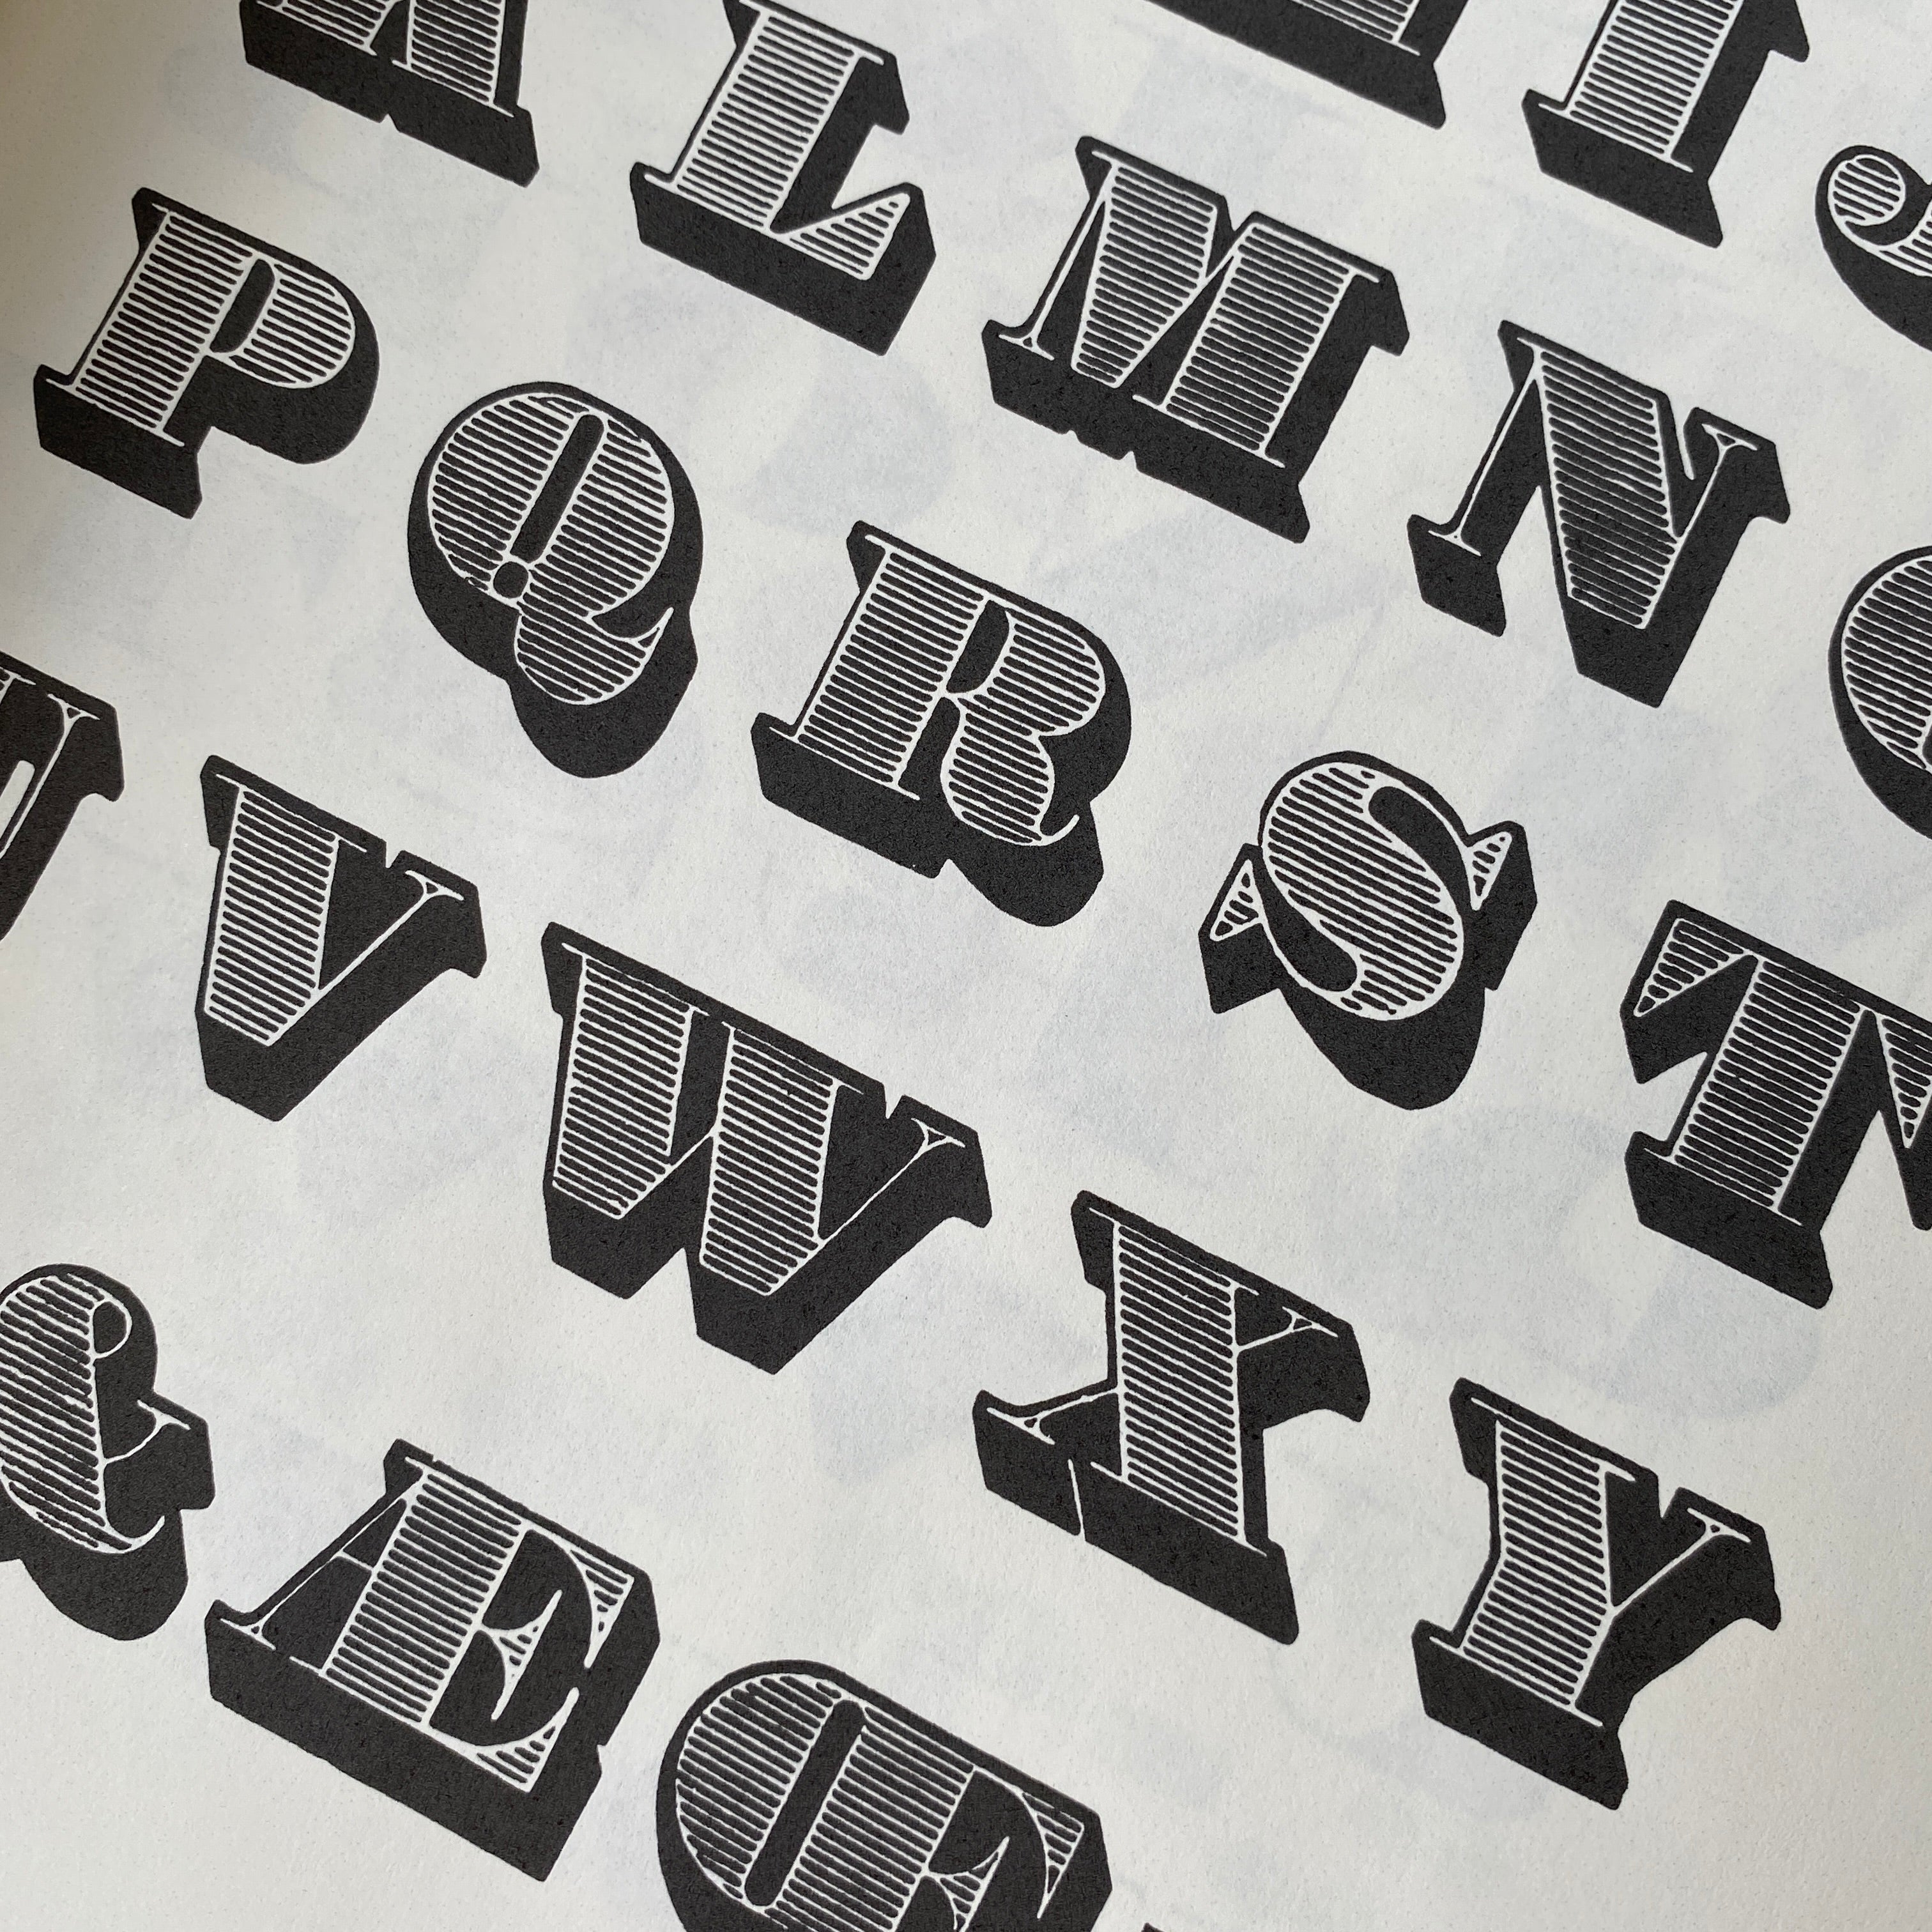 H I J
K L M N O
P Q R S T
U V W X Y
& Æ Œ